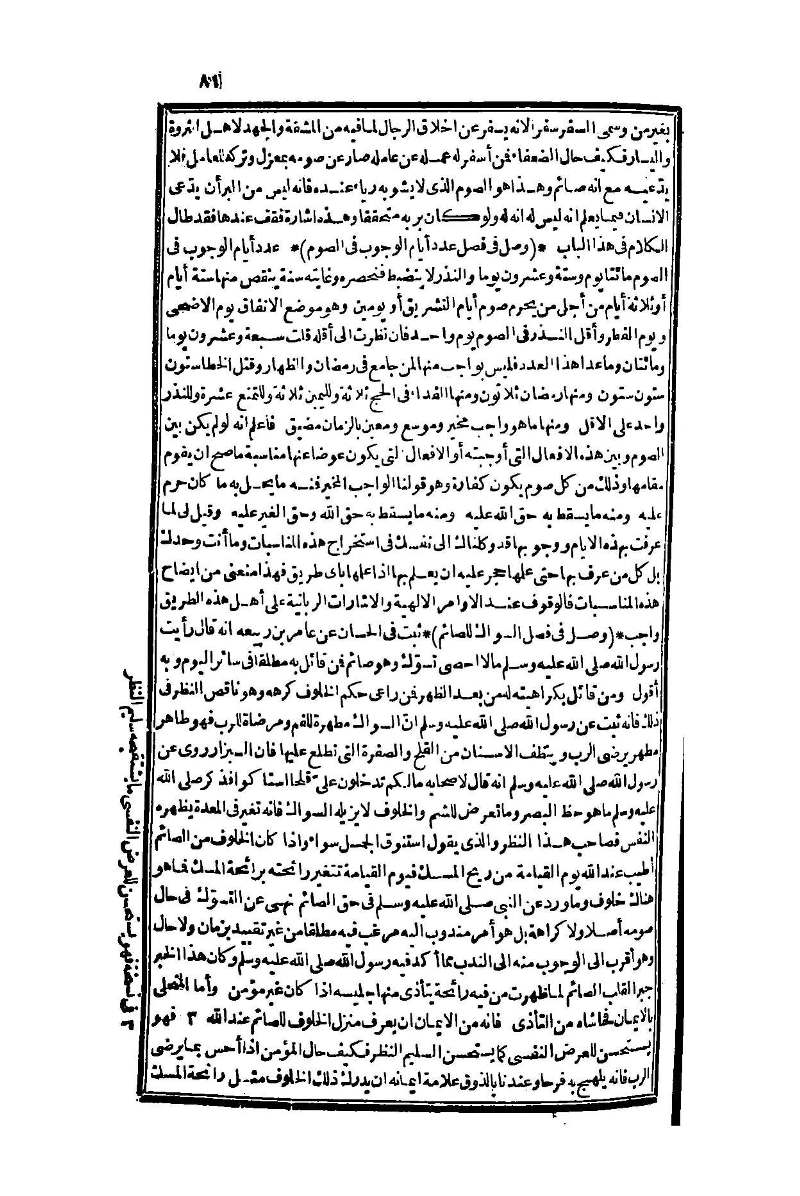 ٨٦١
بغير من وسمى السفر سفرا لانه يسفر عن اخلاق الرجال لما فيه من المشقة والجهد لاهل الثروة
واليسار فكيف حال الضعفاء فمن أسفر له عمله عن عامله صار عن صومه بمعزل وتركه للعامل فلا
يدعيه مع انه صائم وهذا هو الصوم الذى لا يشوبه رياء عنده فانه ليس من البر أن يدعى
الانسان فيما يعلم انه ليس له انه له ولو كان بربه متحققا وهذه اشارة فقف عندها فقد طال
الكلام فى هذا الباب *(وصل فى فصل عدد أيام الوجوب فى الصوم)* عدد أيام الوجوب فى
الصوم مائتا يوم وستة وعشرون يوما والنذر لا ينضبط فنحصره وغايته سنة ينقص منها ستة أيام
أو ثلاثة أيام من أجل من يحرم صوم أيام التشريق أو يومين وهو موضع الاتفاق يوم الاضحى
ويوم الفطر وأقل النذر فى الصوم يوم واحد فان نظرت الى أقله قلت سبعة وعشرون يوما
ومائتان وما عدا هذا العدد فليس بواجب منها لمن جامع فى رمضان والظهار وقتل الخطا ستون
ستون ستون ومنها رمضان ثلاثون ومنها الفداء فى الحج ثلاثة ولليمين ثلاثة وللتمتع عشرة وللنذر
واحد على الاقل ومنها ما هو واجب مخير وموسع ومعين بالزمان مضيق فاعلم انه لو لم يكن بين
الصوم وبين هذه الافعال التى أوجبته أو الافعال التى يكون عوضا عنها مناسبة ما صح ان يقوم
مقامها وذلك من كل صوم يكون كفارة وهو قولنا الواجب المخير فنه ما يحل به ما كان حرم
عليه ومنه ما يسقط به حق الله عليه ومنه ما يسقط به حق الله وحق الغير عليه وقيل لى لما
عرفت بهذه الايام ووجوبها قد وكلناك الى نفسك فى استخراج هذه المناسبات وما أنت وحدك
بل كل من عرف بها حتى علمها حجر عليه ان يعلم بها اذا علمها باى طريق فهذا منعنى من ايضاح
هذه المناسبات فالوقوف عند الاوامر الالهية والاشارات الربانية على أهل هذه الطريق
واجب *(وصل فى فصل السواك للصائم)* ثبت فى الحسان عن عامر بن ربيعه انه قال رأيت
رسول الله صلى الله عليه وسلم مالا احصى تسوك وهو صائم فمن قائل به مطلقا فى سائر اليوم وبه
أقول ومن قائل بكراهيته لمن بعد الظهر فمن راعى حكم الخلوف كرهه وهو ناقص النظر فى
ذلك فانه ثبت عن رسول الله صلى الله عليه وسلم ان السواك مطهرة للفم ومرضاة للرب فهو طاهر
مطهر يرضى الرب وينظف الاسنان من القلح والصفرة التى تطلع عليها فان البزار روى عن
رسول الله صلى الله عليه وسلم انه قال لاصحابه ما لكم تدخلون على قلحا استاكوا فذكر صلى الله
عليه وسلم ما هو حظ البصر وما تعرض للشم والخلوف لا يزيله السواك فانه تغير فى المعدة يظهره
النفس فصاحب هذا النظر والذى يقول استنوق الجمل سواء واذا كان الخلوف من الصائم
أطيب عند الله يوم القيامة من ريح المسك فيوم القيامة تتغير رائحته برائحة المسك فما هو
هناك خلوف وما ورد عن النبى صلى الله عليه وسلم فى حق الصائم نهى عن التسوك فى حال
صومه أصلا ولا كراهة بل هو أمر مندوب اليه مرغب فيه مطلقا من غير تقييد بزمان ولا حال
وهو أقرب الى الوجوب منه الى الندب مما أكد فيه رسول الله صلى الله عليه وسلم وكان هذا الخبر
جبرا لقلب الصائم لما ظهرت من فيه رائحة يتأذى منها جليسه اذا كان غير مؤمن وأما المتحلى
بالايمان فحاشاه من التأذى فانه من الايمان ان يعرف منزل الخلوف للصائم عند الله ٣ فهو
يستحسن للعرض النفسى كما يستحسن السليم النظر فكيف حال المؤمن اذا أحس بما يرضى
الرب فانه يلهج به فرحا وعندنا بالذوق علامة ايمانه ان يدرك ذلك الخلوف مثل رائحة المسك
٣ فى نسخة فهو يستحسن للعرض النفسى ما يستقبحه سليم النظر